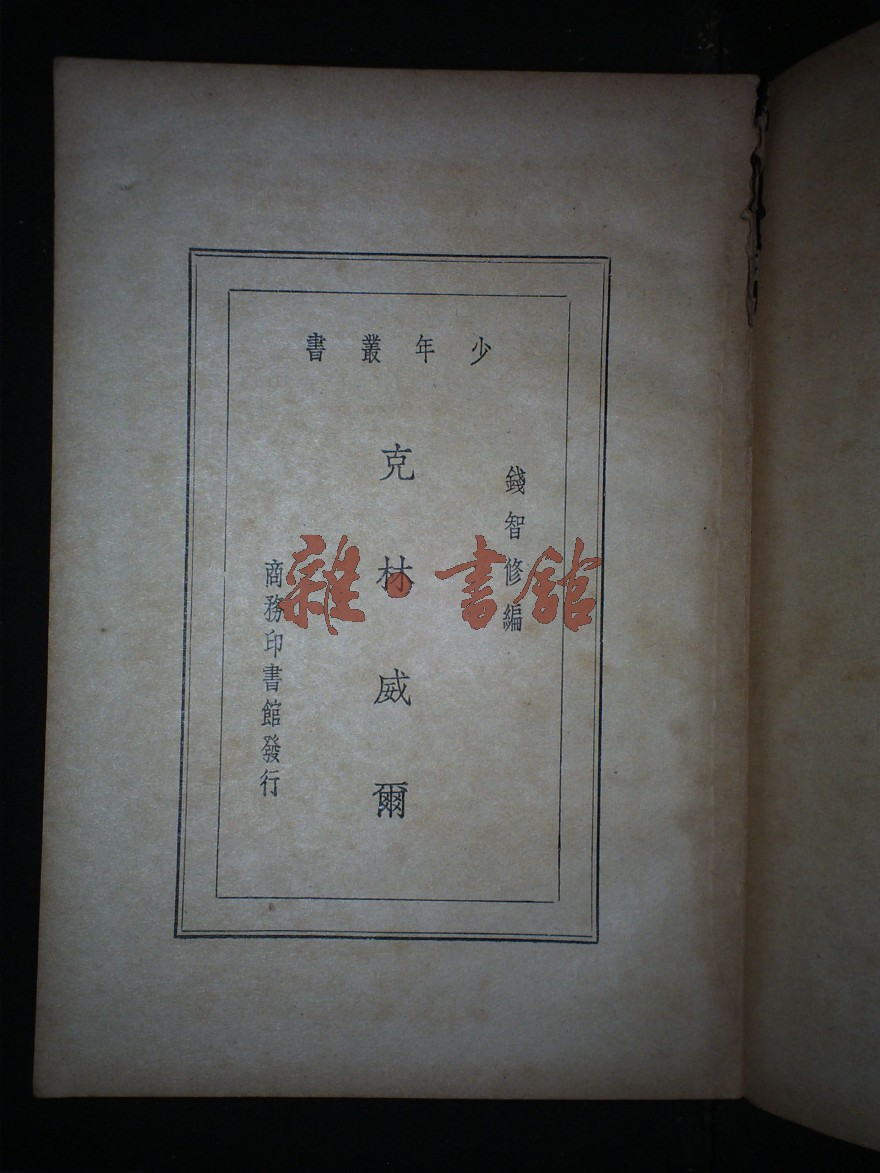 少年叢書
錢智修編
克林威爾
商務印書館發行
雜·書館